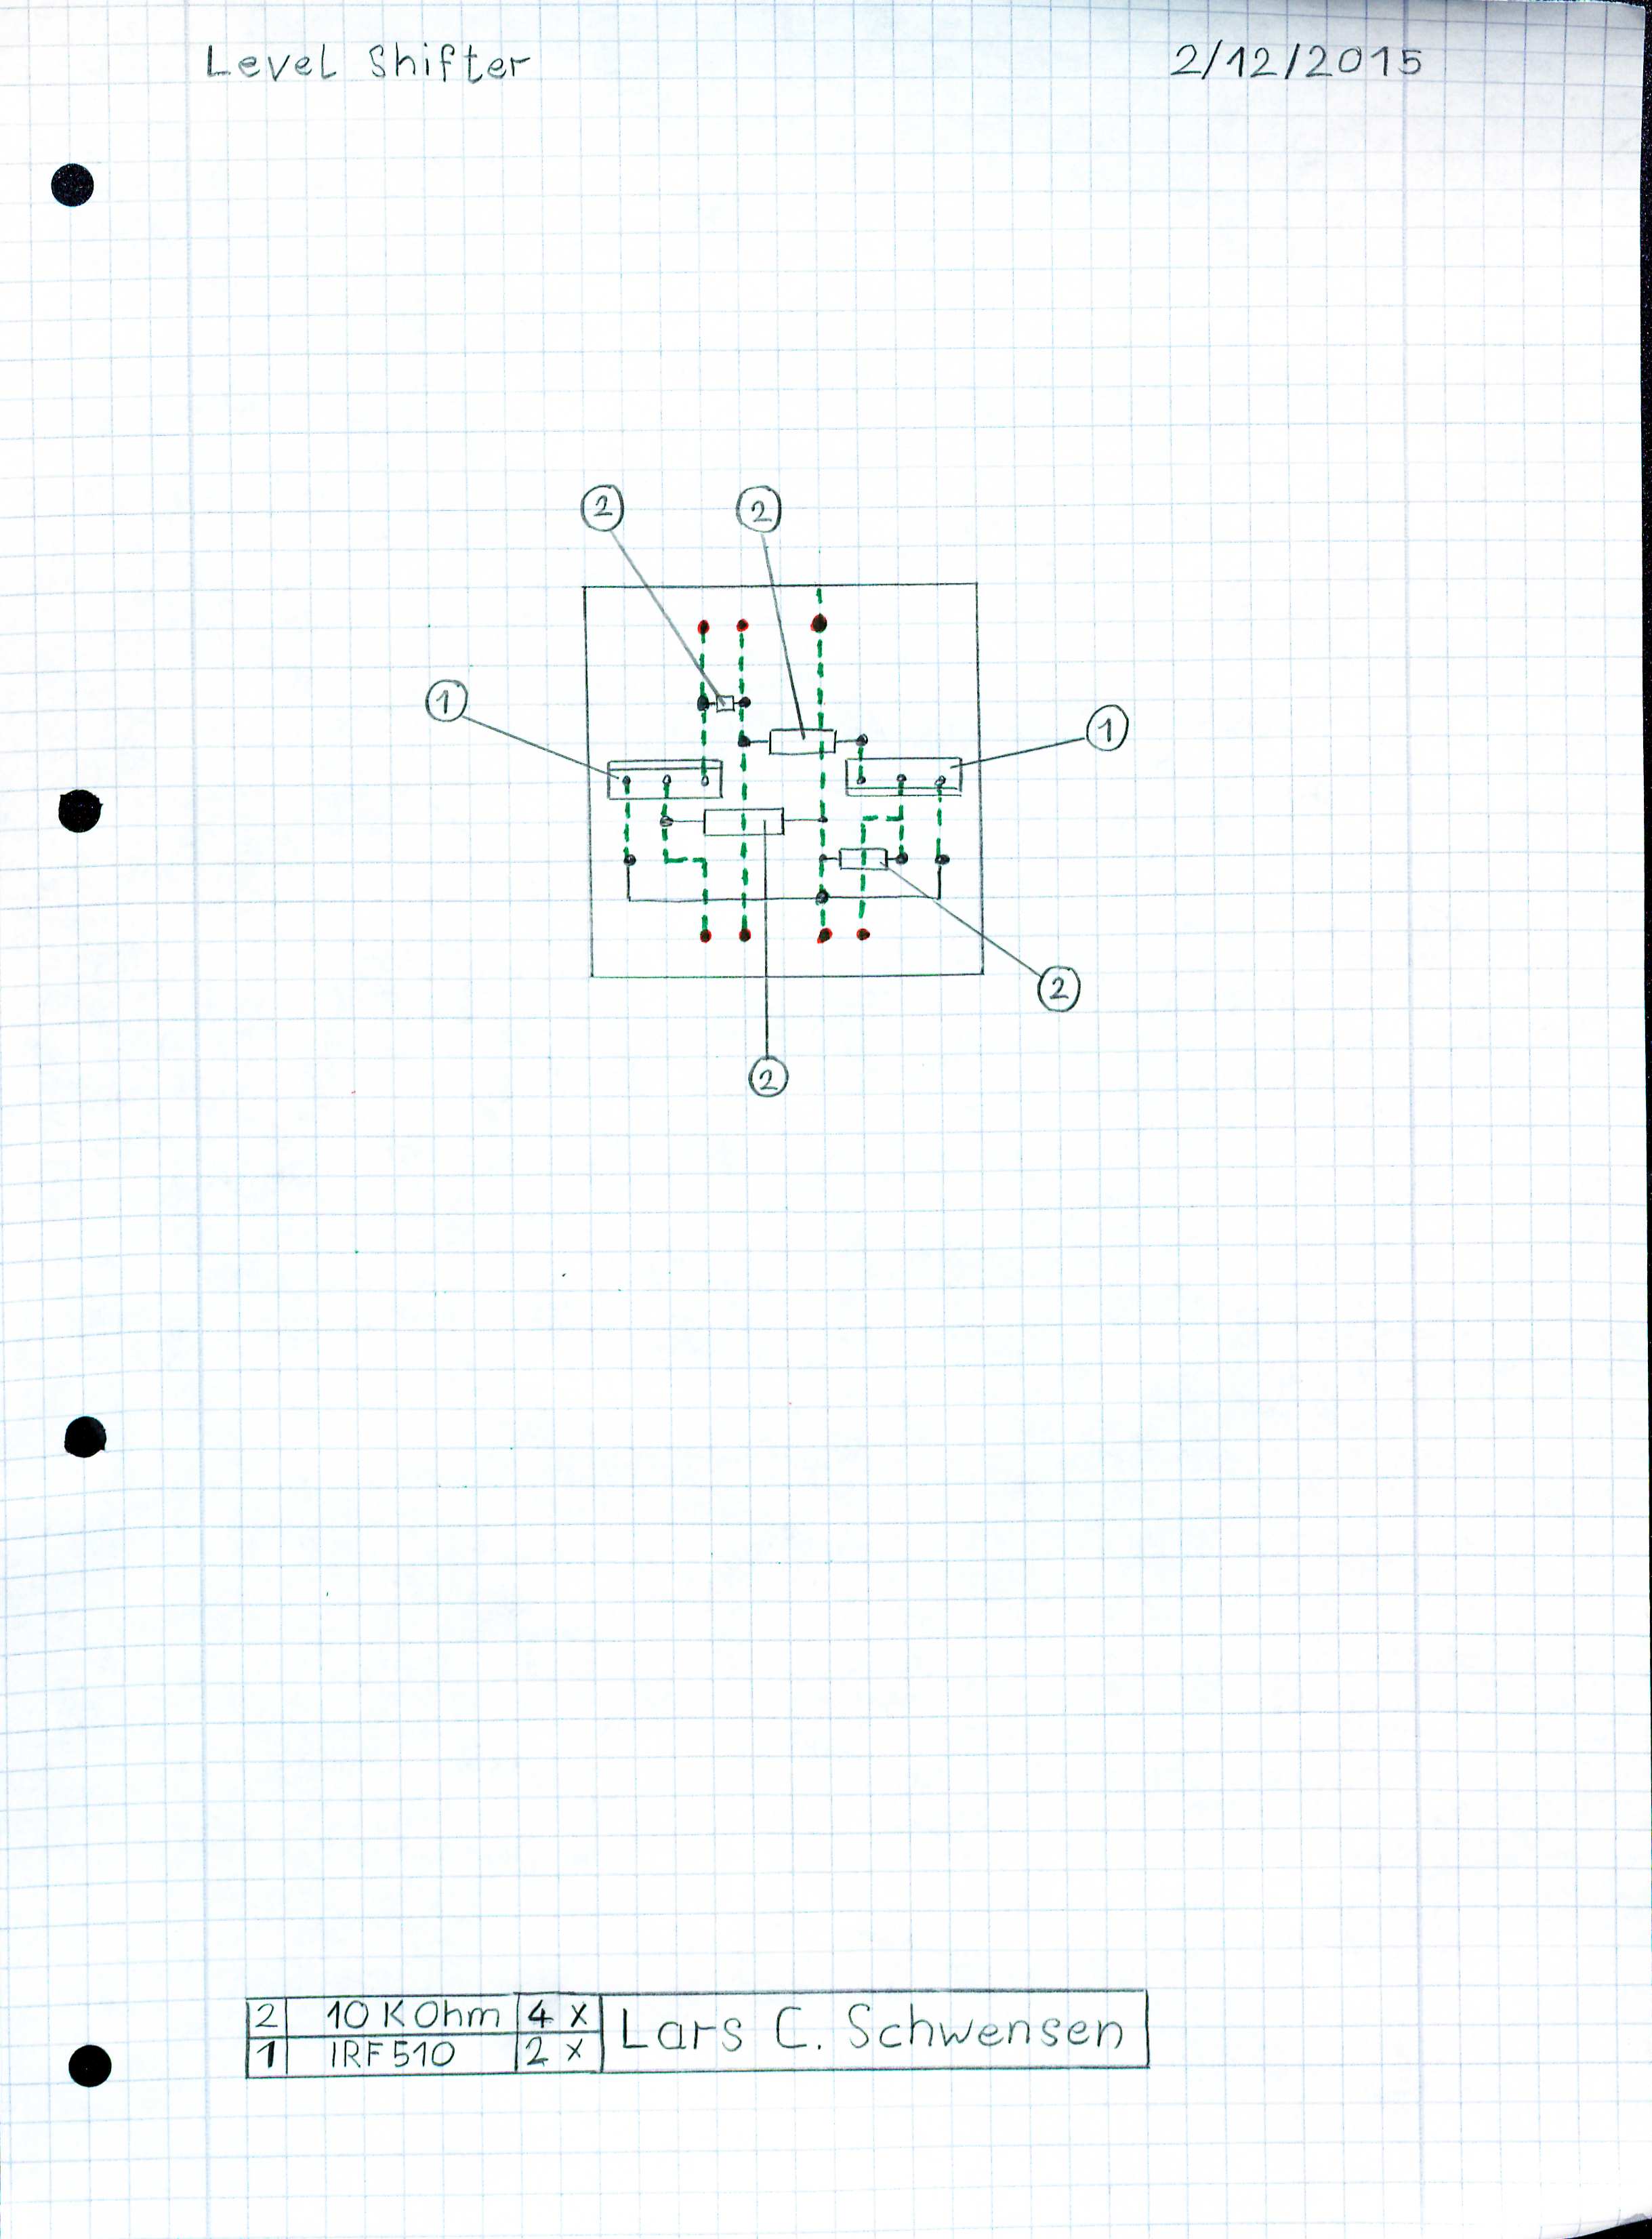 Level Shifter 2/12/2015
2 2
1 1
2
2
2 10 K Ohm 4 x Lars C. Schwensen
1 IRF510 2 x